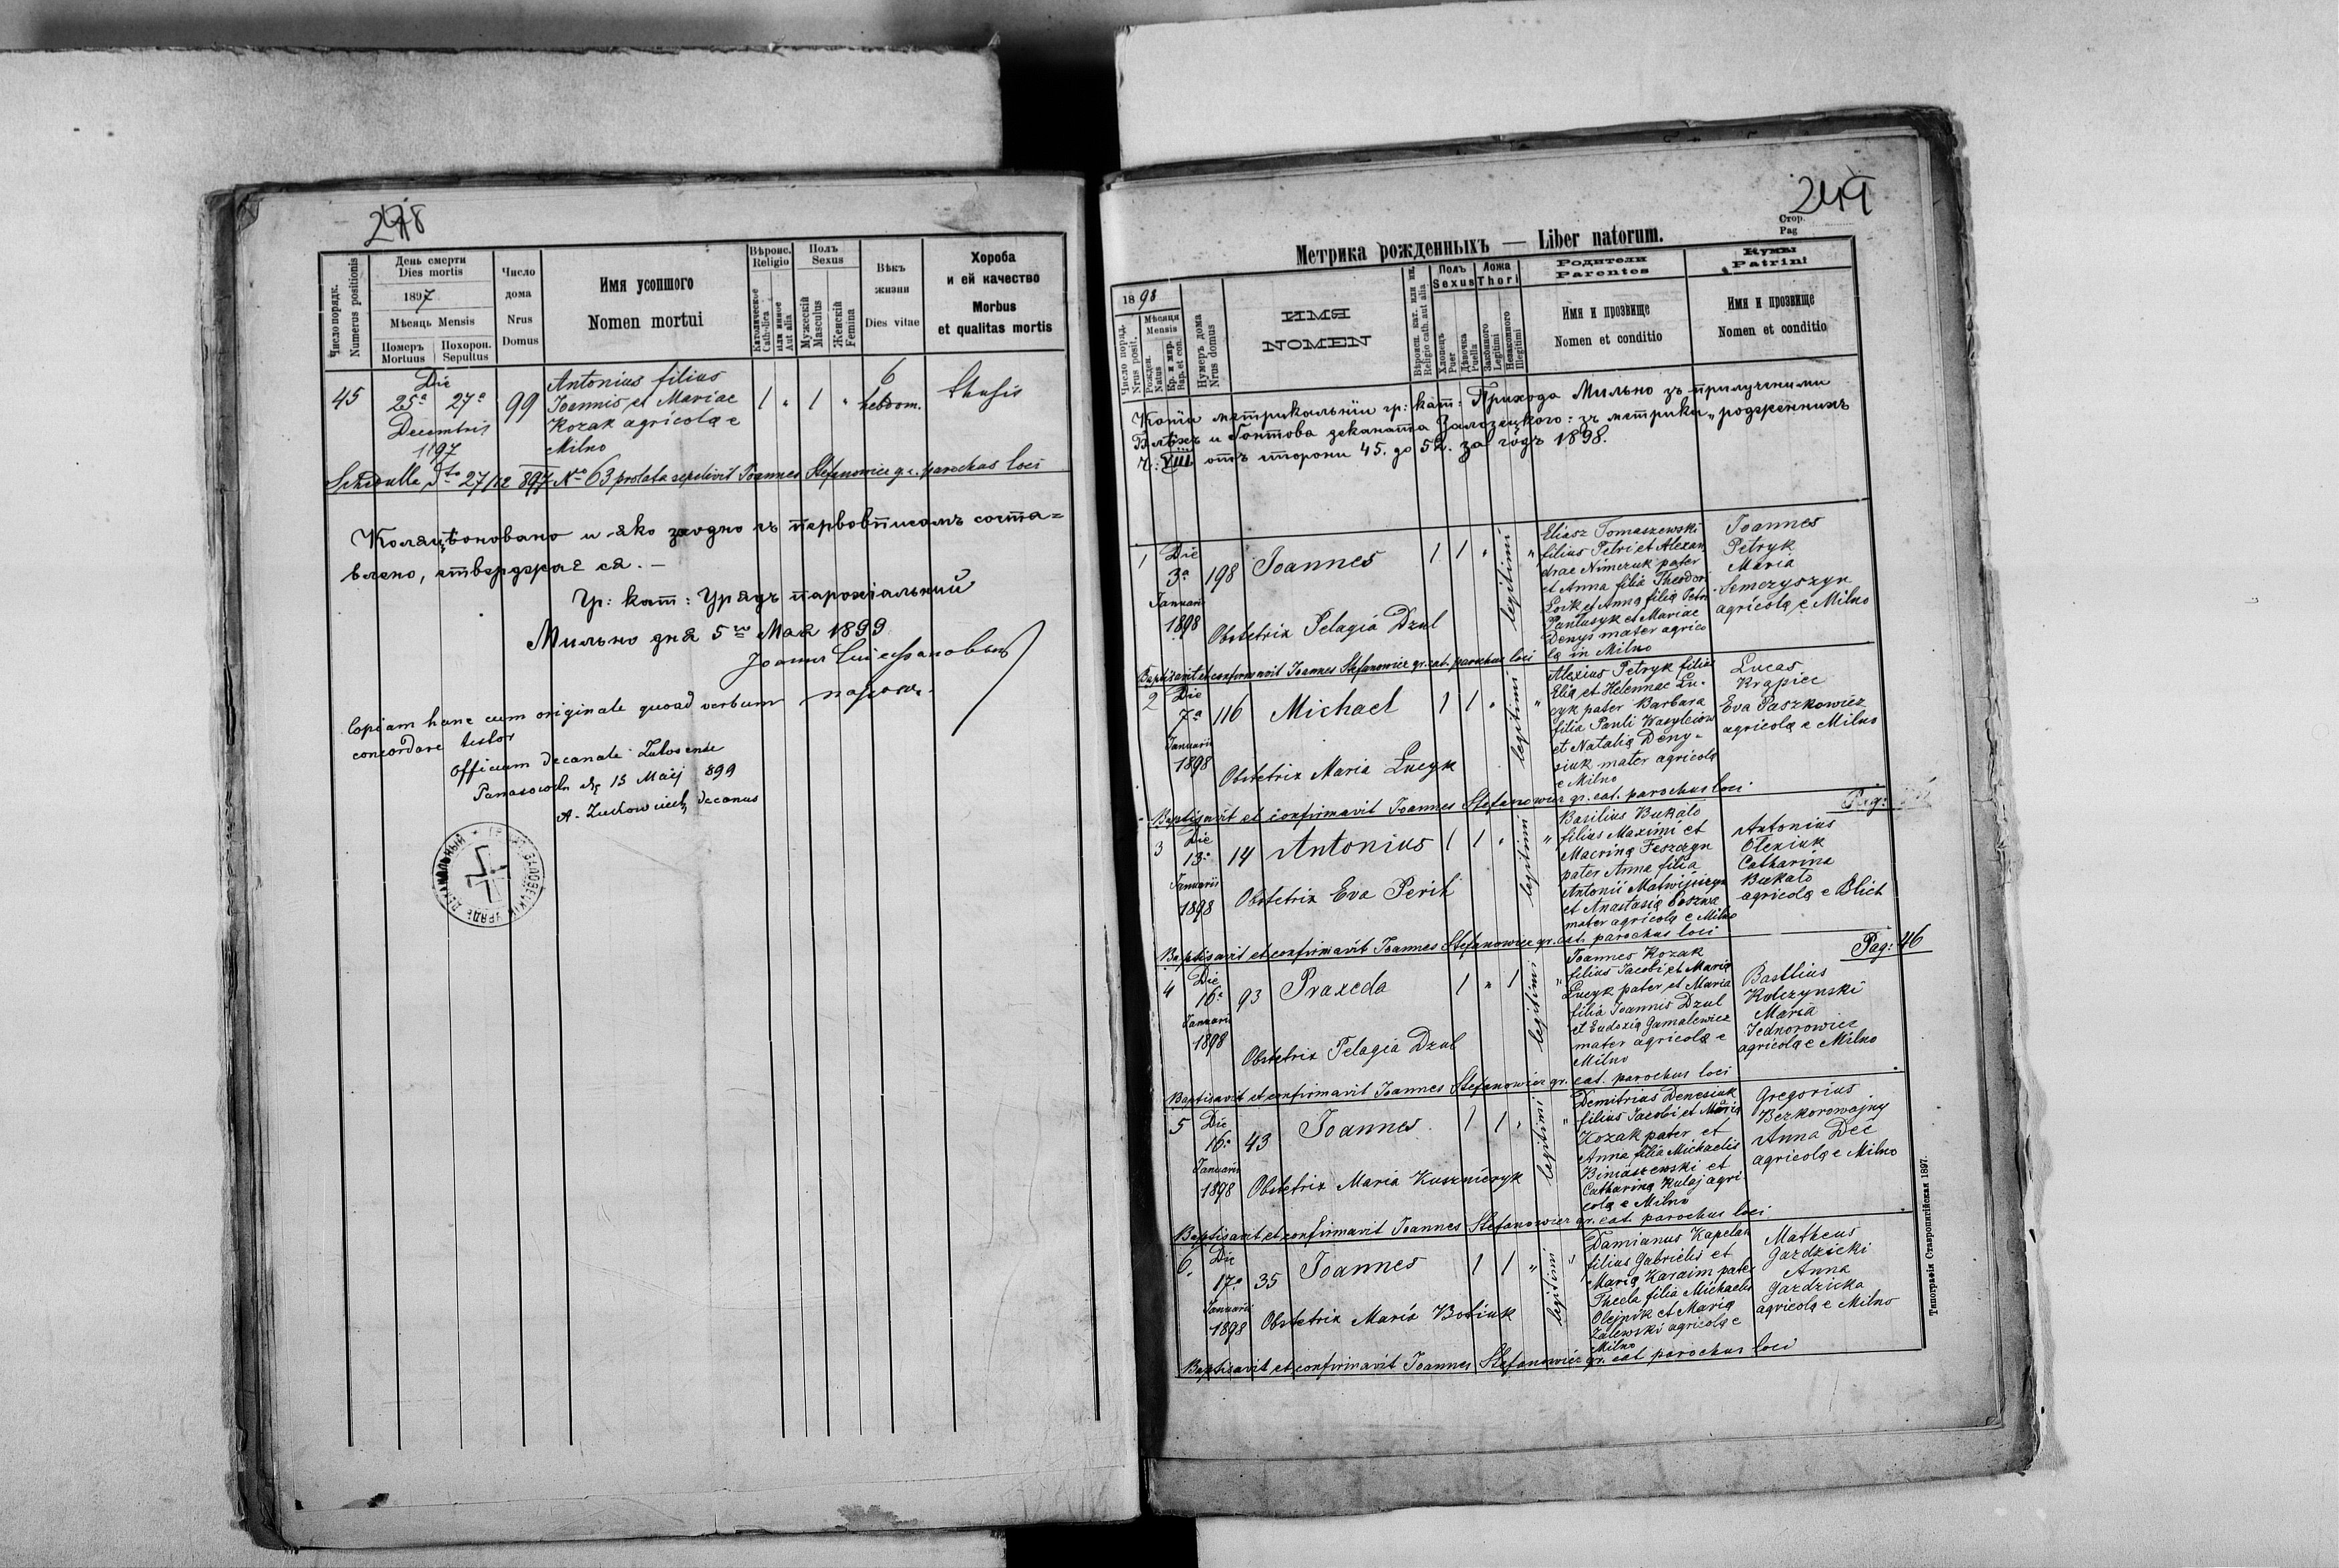 248
Число порядк.
Numerus positionis
День смерти
Dies mortis
1897
Мѣсяць Mensis
Померъ
Mortuus
Похорон.
Sepultus
Число
дома
Nrus
Domus
Имя усопшого
Nomen mortui
Вѣроис.
Religio
Католическое
Catholica
или иное
Aut alia
Полъ
Sexus
Мужескій
Masculus
Женскій
Femina
Вѣкъ
жизни
Dies vitae
Хороба
и ей качество
Morbus
et qualitas mortis
45
Die
25a 27a
Decembris
1897
99
Antonius filius
Joannis et Mariae
Kozak agricolae
Milno
1 " 1 "
6
hebdom.
thusis
Schedulla dto 27/12 897 No 63 prolata sepelivit Joannes Stefanowicz g.c. parochus loci
Коляціоновано и яко заодно съ первописомъ соста=
влено, стверджає ся. —
Гр: кат: Урядъ парохіальний
Мильно дня 5го Мая 1899
Copiam hanc cum originale quoad verbum
concordare testor
Officium decanale Zalosense
13 Maij 899
decanus
249
Стор.
Pag
Метрика рожденныхъ — Liber natorum.
1898
Число поряд.
Nrus posit.
Мѣсяця
Mensis
Рожден.
Natus
Кр. и мир.
Bap. et con.
Нумеръ дома
Nrus domus
ИМЯ
NOMEN
Вѣроисп. кат. или ин.
Religio cath. aut alia
Полъ
Sexus
Хлопець
Puer
Дѣвочка
Puella
Ложа
Thori
Законного
Legitimi
Незаконного
Illegitimi
Родители
Parentes
Имя и прозвище
Nomen et conditio
Кумы
Patrini
Имя и прозвище
Nomen et conditio
Копія метрикальнїи гр: кат: Прихода Мильно зъ прилучними
Блѣхъ и Гонтова деканата Залозецкого: зъ метрики „родженнихъ
Ч: VIII отъ сторони 45. до 52. за годъ 1898.
1
Die
3a
Januarii
1898
198
Joannes
1 1 "
legitimi
"
Obstetrix Pelagia Dzul
Eliasz Tomaszewski
filius Petri et Alexan
drae Nimczuk pater
et Anna filia Theodori
et Anna filia Petri
Pantasyk et Mariae
Denys mater agrico
la in Milno
Joannes
Petryk
Maria
Semczyszyn
agricolae Milno
Baptisavit et confirmavit Joannes Stefanowicz gr. cat. parochus loci
2
Die
7a
Januarii
1898
116
Michael
1 1 "
legitimi
"
Obstetrix Maria Lucyk
Alexius Petryk filius
Elia et Helennae Lu-
cyk pater Barbara
filia Pauli Wasylciow
et Natalia Deny-
siuk mater agricola
e Milno
Lucas
Krapiec
Eva Paszkowicz
agricola e Milno
Baptisavit et confirmavit Joannes Stefanowicz gr. cat. parochus loci.
Pag:
3
Die
13a
Januarii
1898
14
Antonius
1 1 "
legitimi
"
Obstetrix Eva Perih
Basilius Bukato
filius Maximi et
Macrina Feszczyn
pater Anna filia
Antonii Matwijiszyn
et Anastasia
mater agricola e Milno
Antonius
Olexiuk
Catharina
Bukato
agricola e Blich
Baptisavit et confirmavit Joannes Stefanowicz gr. cat. parochus loci
Pag: 46
4
Die
16a
Januarii
1898
93
Praxeda
1 " 1
legitimi
"
Obstetrix Pelagia Dzul
Joannes Kozak
filius Jacobi et Maria
Lucyk pater, et Maria
filia Joannis Dzul
et Eudoxia Gamalewicz
mater agricola e
Milno
Basilius
Kolczynski
Maria
Jednorowicz
agricola e Milno
Baptisavit et confirmavit Joannes Stefanowicz gr. cat. parochus loci
5
Die
16a
Januarii
1898
43
Joannes
1 1 "
legitimi
"
Obstetrix Maria Kusznieryk
Demitrius Denesiuk
filius Jacobi et Maria
Kozak pater et
Anna filia Michaelis
Biniaszewski et
Catharina Kulaj agri
cola e Milno
Gregorius
Bezkorowajny
Anna Dec
agricola e Milno
Baptisavit et confirmavit Joannes Stefanowicz gr. cat. parochus loci
6.
Die
17a
Januarii
1898
35
Joannes
1 1 "
legitimi
"
Obstetrix Maria Botiuk
Damianus Kapelan
filius Gabrielis et
Maria Karaim pater
Thecla filia Michaelis
Olejnik et Maria
Zalewski agricola e
Milno
Matheus
Gazdzicki
Anna
Gazdzicka
agricola e Milno
Baptisavit et confirmavit Joannes Stefanowicz gr. cat parochus loci
Типографія Ставропигійская 1897.